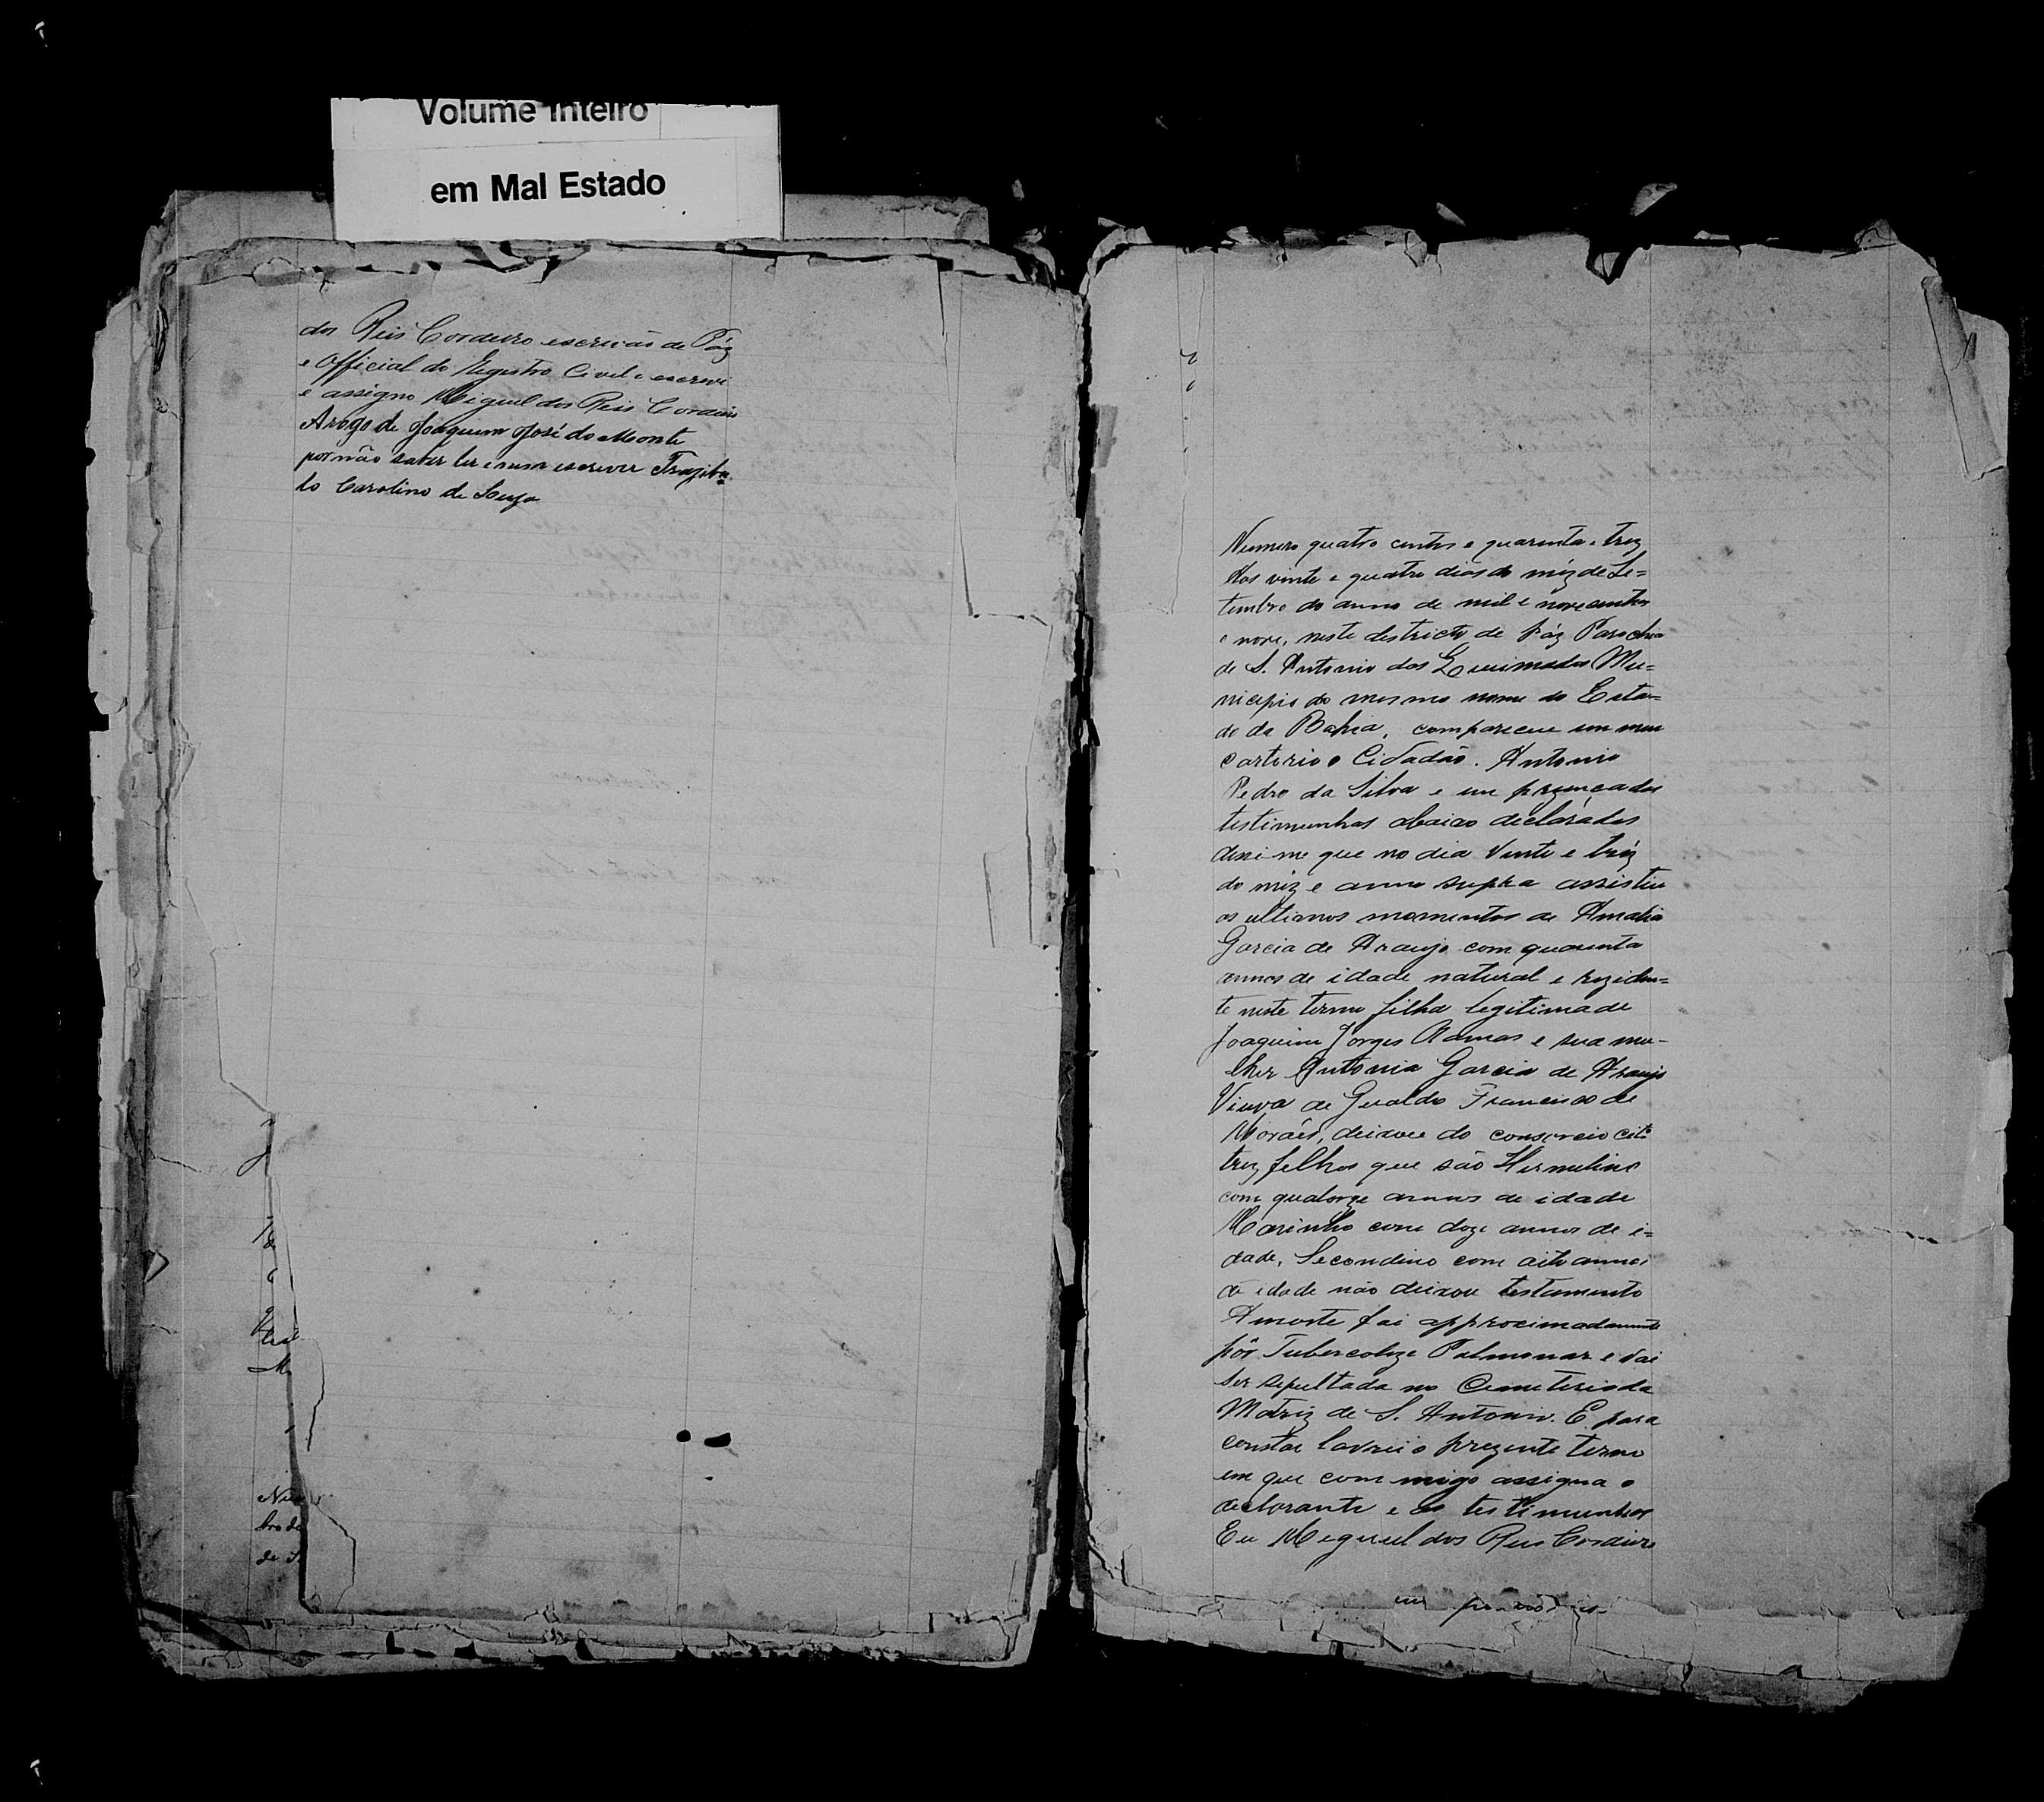 Volume Inteiro
em Mal Estado
dos Reis Cordeiro escrivão de Páz
e Official do Registro Civel e escrevi
e assigno Miguel dos Reis Cordeiro
Arogo de Joaquim José do Monte
por não saber ler e nem escrever Trazibu
lo Carolino de Souza
Numero quatro centos e quarenta e trez
Aos vinte e quatro dias do mêz de Se=
tembro do anno de mil e novecentos
e nove, neste destricto de Páz Parochia
de S. Antonio dos Queimados Mu=
nicipio do mesmo nome do Esta=
do da Bahia, compareceu em meu
cartorio o Cidadão. Antonio
Pedro da Silva e em prezença das
testimunhas abaixo declaradas
disse me que no dia Vinte e trêz
do mêz e anno supra assistiu
os ultimos momentos de Amalia
Garcia de Araujo com quarenta
annos de idade natural e reziden=
te neste termo filha legitima de
Joaquim Jorges e sua mu-
lher Antonia Garcia de Araujo
Viuva de Geraldo Francisco de
Morães, deixou do consorcio
trez filhos que são Hermelino
com quatorze annos de idade
Marinho com doze annos de i=
dade, Secondino com oito annos
de idade não deixou testamento
A morte foi approximadamente
pôr Tubercoloze Polmonar e vai
ser sepultada no Cemeterio da
Matriz de S. Antonio. E para
constar lavrei o prezente termo
em que com migo assigna o
declarante e as testimunhas
Eu Meguel dos Reis Cordeiro